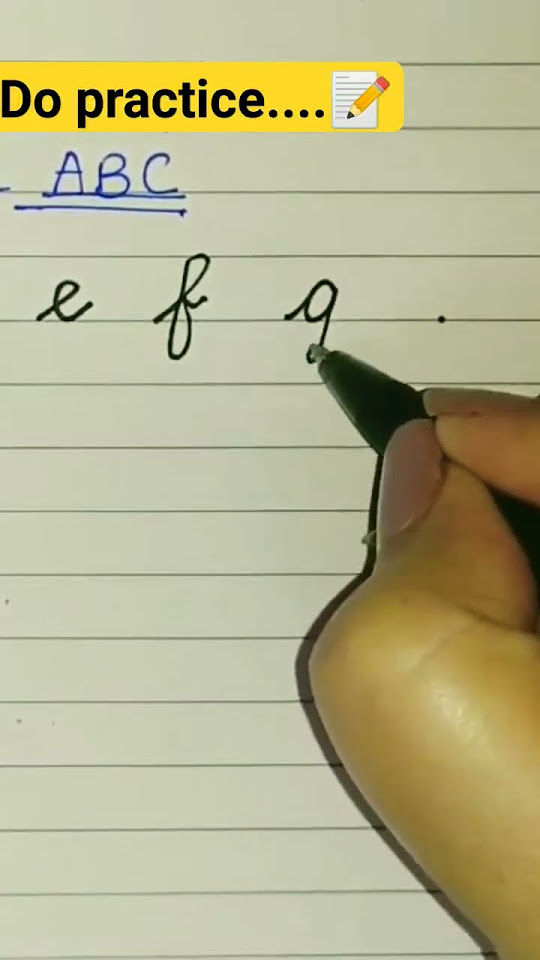 Do practice....📝
- ABC
e f g .